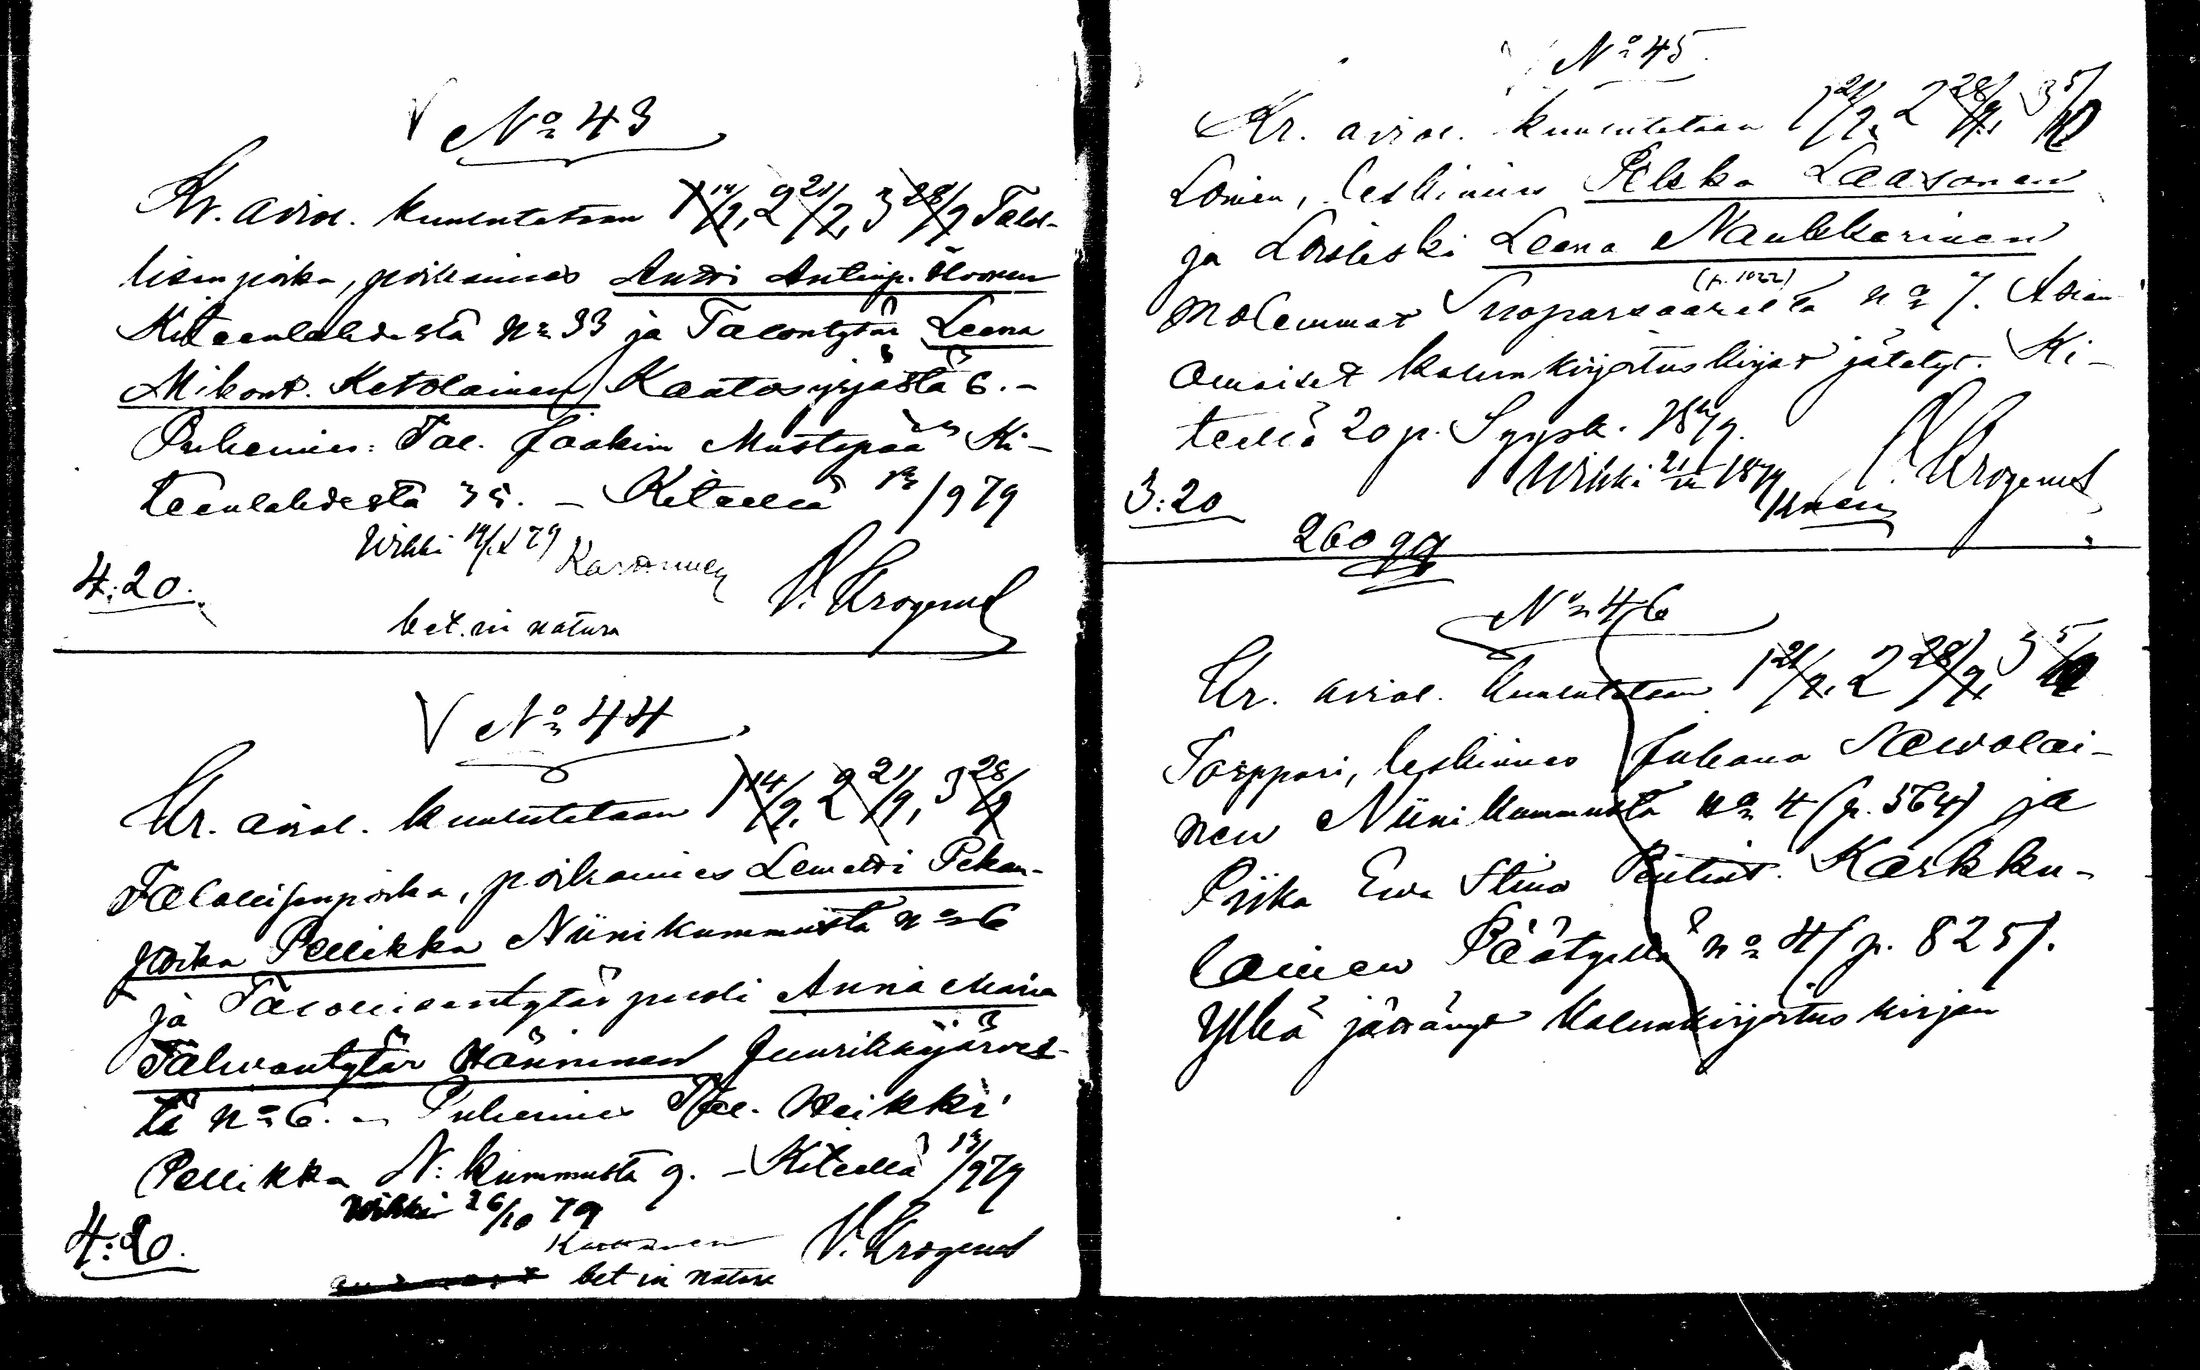 No 43
Kr. aviol. kuulutetaan 1 14/9, 2 21/9, 3 28/9 Talol-
lisenpoika, poikamies Antti Antinp.
Kiteenlahdesta No 33 ja Talontytär Leena
Mikont. Ketolainen Kantosyrjästä 6. –
Puhemies: Tal. Joakim Mustopää Ki-
teenlahdesta 35. – Kiteellä 13/9 79
Wihki 19/X 79
4:20.
V. Krogerus
bet. in natura
No 44
Kr. aviol. kuulutetaan 1 14/9, 2 21/9, 3 28/9
Talollisenpoika, poikamies Lemetti Pekan-
poika Pellikka Niinikummusta no 6
ja Talollisentytär puoli Anna Maria
Tahwontytär Hänninen Juurikkajärves-
tä no 6. – Puhemies Tal. Heikki
Pellikka N: kummusta 9. – Kiteellä 13/9 79
Wihki 26/10 79
4:20.
V. Krogerus
bet in natura
No 45
Kr. aviol. kuulutetaan 1 21/9, 2 28/9, 3 5/10
Loinen, leskimies Pekka Laasonen
ja Loisleski Leena Naukkarinen
(p. 1022)
molemmat Suoparsaarelta no 7. Asian-
omaiset kaluunkirjoituskirjat jätetyt. Ki-
teellä 20 p. Syysk. 1879.
Wihki 1879
V. Krogerus
3:20
260
No 46
Kr. aviol. kuulutetaan 1 21/9, 2 28/9, 3 5/10
Torppari, leskimies Juhana Sawolai-
nen Niinikummusta no 4 (p. 564) ja
Piika Ewa Stina Pentint. Karkku-
lainen Päätyeltä no 4 (p. 825).
Ylkä jättänyt kaluunkirjoitus kirjan